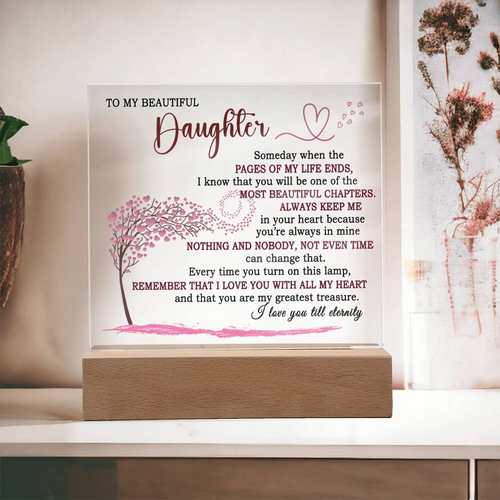 TO MY BEAUTIFUL
Daughter
Someday when the
PAGES OF MY LIFE ENDS,
I know that you will be one of the
MOST BEAUTIFUL CHAPTERS.
ALWAYS KEEP ME
in your heart because
you're always in mine
NOTHING AND NOBODY, NOT EVEN TIME
can change that.
Every time you turn on this lamp,
REMEMBER THAT I LOVE YOU WITH ALL MY HEART
and that you are my greatest treasure.
I love you till eternity